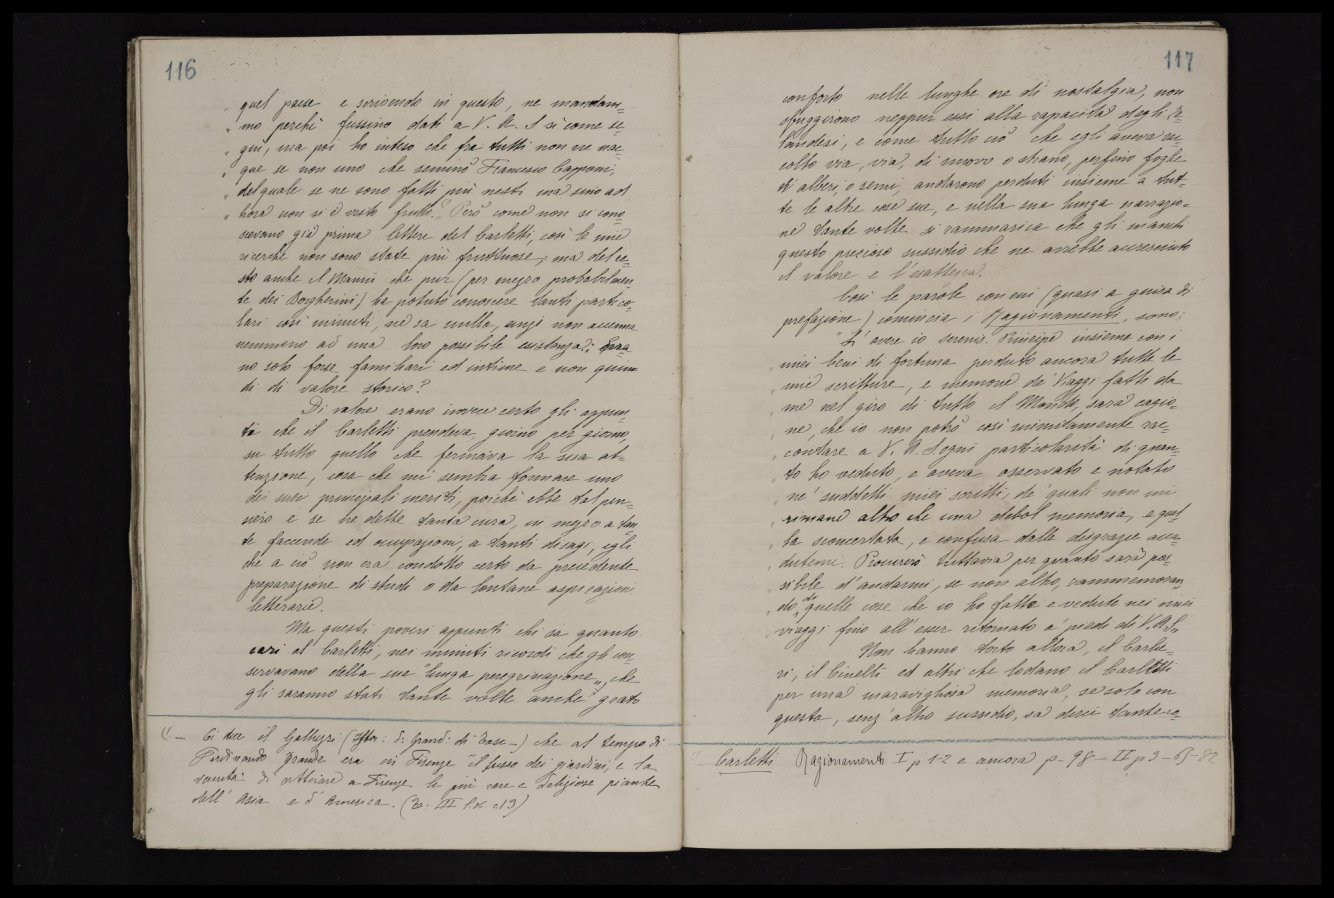 116
quel paese e scrivendo in questo, ne mandam=
„ mo perchè fussino dati a V. A. S sì come se=
„ guì, ma poi ho inteso che fra tutti non ne nac=
„ que se non uno che seminò Francesco Capponi,
„ del quale se ne sono fatti più nesti ma sino ad
„ hora non si è visto frutto." Però come non si cono=
scevano già prima lettere del Carletti, così le mie
ricerche non sono state più fruttuose; ma del re=
sto anche il Manni che pur (per mezzo probabilmen
te dei Borgherini) ha potuto conoscere tanti partico=
lari così minuti, ne sa nulla, anzi non accenna
nemmeno ad una loro possibile esistenza: Era=
no solo forse familiari ed intime e non quin=
di di valore storico?
Di valore erano invece certo gli appun=
ti che il Carletti prendeva, giorno per giorno,
su tutto quello che fermava la sua at=
tenzione, cosa che mi sembra formare uno
dei suoi principali meriti, poichè ebbe tal pen=
siero e se ne dette tanta cura, in mezzo a tan
te faccende ed occupazioni, a tanti disagi, egli
che a ciò non era condotto certo da precedente
preparazione di studi o da lontane aspirazioni
letterarie.
Ma questi poveri appunti chi sa quanto
cari al Carletti, nei minuti ricordi che gli con=
servavano della sua "lunga peregrinazione„ che
gli saranno stati tante volte anche grato
(1 — Ci dice il Galluzzi (Istor: di Grand: di Tosc —) che al tempo di
Ferdinando grande era in Firenze il lusso dei giardini, e la
vanità di attirare a Firenze le più rare e deliziose piante
dell' Asia e d' America. (T. III l. V c 13)
117
conforto nelle lunghe ore di nostalgia, non
sfuggirono neppur essi alla rapacità degli O=
landesi, e come tutto ciò che egli aveva rac=
colto via, via, di nuovo o strano, perfino foglie
di alberi, o semi, andarono perduti insieme a tut=
te le altre cose sue, e nella sua lunga narrazio=
ne tante volte si rammarica che gli manchi
questo prezioso sussidio che ne avrebbe accresciuto
il valore e l'esattezza.
Così le parole con cui (quasi a guisa di
prefazione) comincia i Ragionamenti, sono:
"L' avere io sereniss. Principe insieme con i
„ miei beni di fortuna perduto ancora tutte le
„ mie scritture, e memorie de' Viaggi fatti da
„ me nel giro di tutto il Mondo, sarà cagio=
„ ne, che io non potrò così minutamente rac=
„ contare a V. A. S. ogni particolarità di quan=
„ to ho veduto, e aveva osservato e notato
„ ne' suddetti miei scritti, de' quali non mi
„ rimane altro che una debol memoria, e quel
„ la sconcertata, e confusa dalle disgrazie acca=
„ dutemi. Procurerò tuttavia per quanto sarà pos=
„ sibile d' andarmi, se non altro, rammemoran
„ do di quelle cose che io ho fatte e vedute nei miei
„ viaggi fino all' esser ritornato a' piedi di V.A.S.„
Non hanno torto allora, il Carle=
ri, il Cinelli ed altri che lodano il Carletti
per una maravigliosa memoria, se solo con
questa, senz' altro sussidio, sa dirci tante co=
Carletti Ragionamenti I p 1-2 e ancora p- 98 — II p 3 – 65 – 82